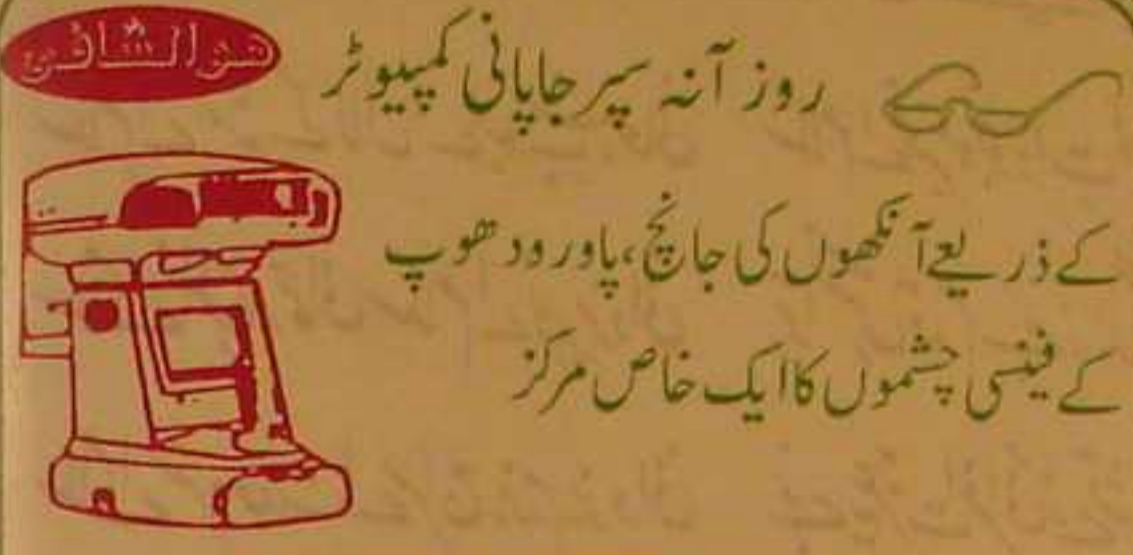 ھوالشافی
روز آنہ سپر جاپانی کمپیوٹر
کے ذریعے آنکھوں کی جانچ، پاور ودھوپ
کے فینسی چشموں کا ایک خاص مرکز